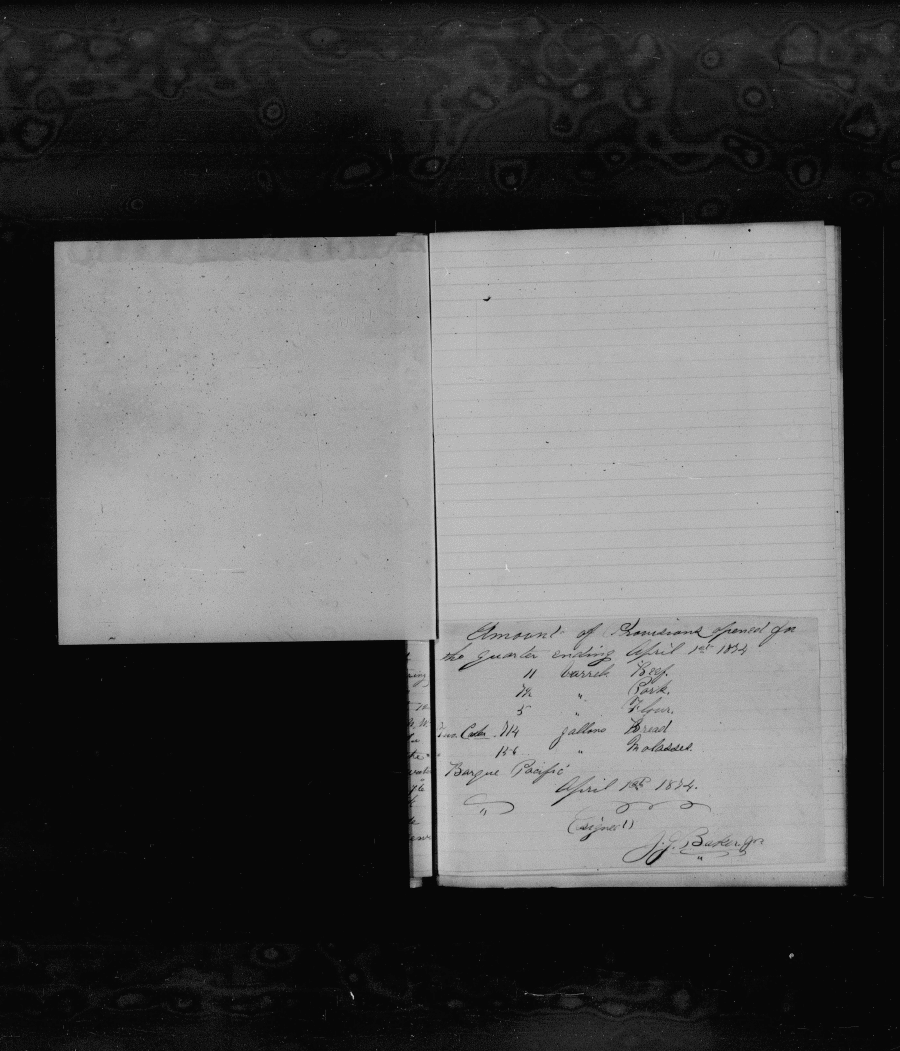 Amount of Provisions opened for
the quarter ending April 1st 1874
11 barrels Beef.
" Pork.
5 " Flour.
Two Casks 714 gallons Bread
156 " Molasses.
Barque Pacific
April 1st 1874.
"
(signed)
J. G. Baker, Jr
"